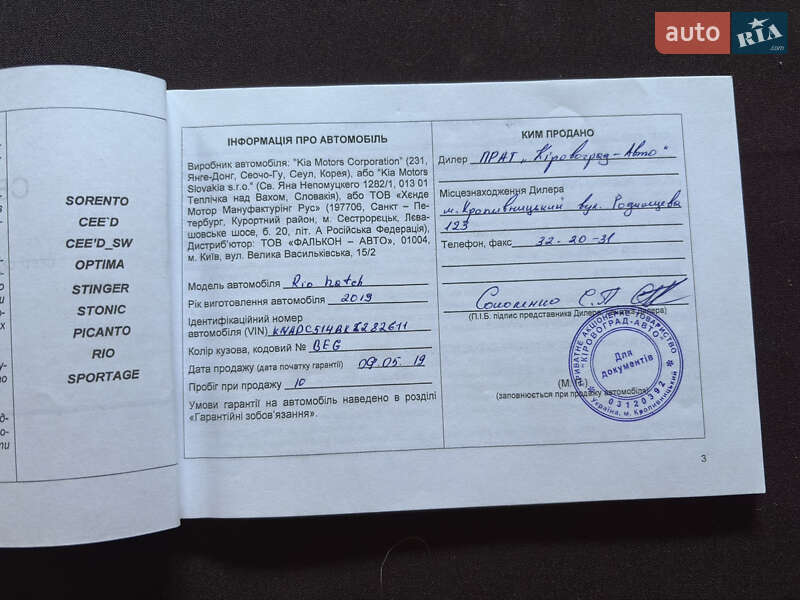 auto RIA
.com
SORENTO
CEE`D
CEE'D_SW
OPTIMA
STINGER
STONIC
PICANTO
RIO
SPORTAGE
ІНФОРМАЦІЯ ПРО АВТОМОБІЛЬ
Виробник автомобіля: "Kia Motors Corporation" (231,
Янге-Донг, Сеочо-Гу, Сеул, Корея), або "Kia Motors
Slovakia s.r.o." (Св. Яна Непомуцкого 1282/1, 013 01
Теплічка над Вахом, Словакія), або ТОВ «Хєнде
Мотор Мануфактурінг Рус» (197706, Санкт – Пе-
тербург, Курортний район, м. Сестрорєцьк, Лєва-
шовське шосе, б. 20, літ. А Російська Федерація),
Дистриб'ютор: ТОВ «ФАЛЬКОН – АВТО», 01004,
м. Київ, вул. Велика Васильківська, 15/2
Модель автомобіля Rio hatch
Рік виготовлення автомобіля 2019
Ідентифікаційний номер
автомобіля (VIN)
Колір кузова, кодовий № BEG
Дата продажу (дата початку гарантії) 09.05.19
Пробіг при продажу 10
Умови гарантії на автомобіль наведено в розділі
«Гарантійні зобов'язання».
КИМ ПРОДАНО
Дилер ПРАТ „Кіровоград-Авто"
Місцезнаходження Дилера
м. Кропивницький вул.
123
Телефон, факс 32-20-31
С.П
(П.І.Б. підпис представника Дилера
(М.П.)
(заповнюється при продажу автомобіля)
ПРИВАТНЕ АКЦІОНЕРНЕ ТОВАРИСТВО
"КІРОВОГРАД-АВТО"
Для
документів
03120392
Україна, м. Кропивницький
3